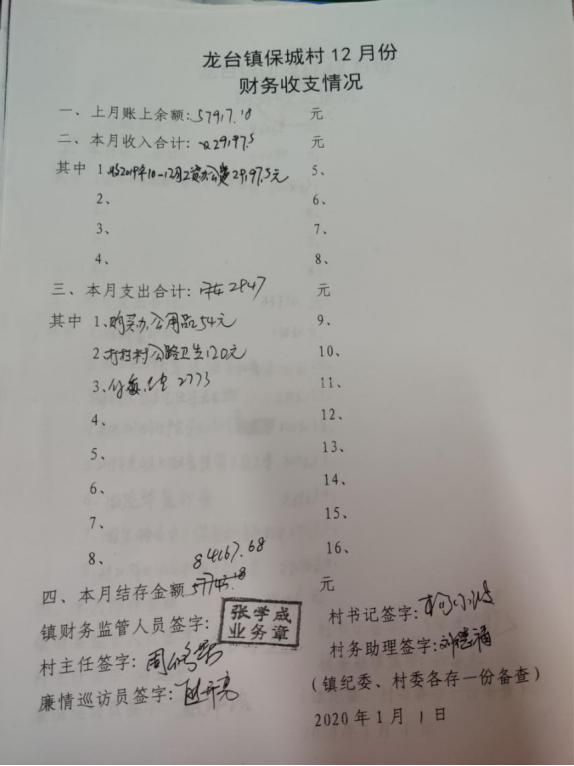 龙台镇保城村12月份
财务收支情况
一、上月账上余额:57917.18 元
二、本月收入合计: 29197.5 元
其中 1、收2019年10-12月工资办公费29197.5元 5、
2、 6、
3、 7、
4、 8、
三、本月支出合计: 2947 元
其中 1、购买办公用品54元 9、
2、打扫村公路卫生120元 10、
3、付 2773 11、
4、 12、
5、 13、
6、 14、
7、 15、
8、 16、
84167.68
四、本月结存金额 元
镇财务监管人员签字: 张学成 业务章 村书记签字:
村主任签字: 周 村务助理签字: 刘
廉情巡访员签字: (镇纪委、村委各存一份备查)
2020年1月1日